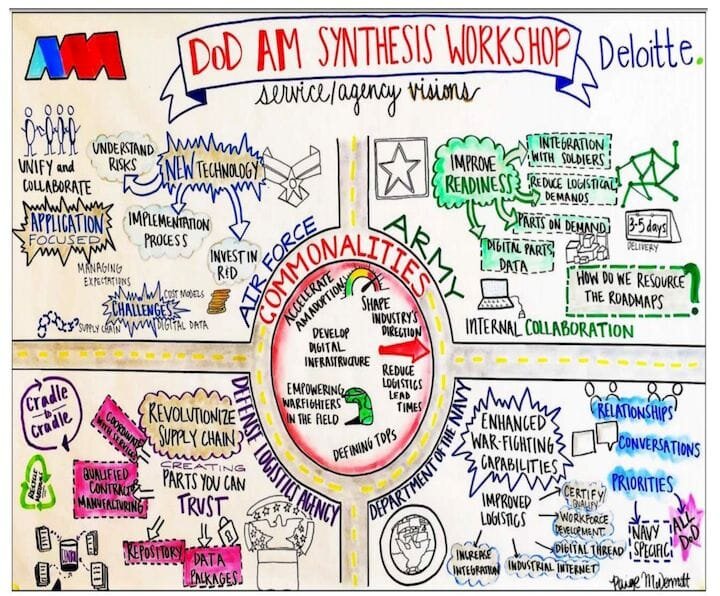 AM
DoD AM SYNTHESIS WORKSHOP
Deloitte.
service/agency visions
UNIFY and
COLLABORATE
UNDERSTAND
RISKS
NEW TECHNOLOGY
APPLICATION
FOCUSED
IMPLEMENTATION
PROCESS
INVEST IN
R&D
MANAGING
EXPECTATIONS
CHALLENGES
COST MODELS
SUPPLY CHAIN
DIGITAL DATA
AIR FORCE
ARMY
IMPROVE
READINESS
INTEGRATION
WITH SOLDIERS
REDUCE LOGISTICAL
DEMANDS
PARTS ON DEMAND
3-5 days
DELIVERY
DIGITAL PARTS
DATA
HOW DO WE RESOURCE
THE ROADMAPS
?
INTERNAL COLLABORATION
COMMONALITIES
ACCELERATE
AM ADOPTION
SHAPE
INDUSTRY'S
DIRECTION
DEVELOP
DIGITAL
INFRASTRUCTURE
REDUCE
LOGISTICS
LEAD
TIMES
EMPOWERING
WARFIGHTERS
IN THE FIELD
DEFINING TDPs
DEFENSE LOGISTICS AGENCY
Cradle
to
Cradle
COORDINATE
WITH SERVICES
REVOLUTIONIZE
SUPPLY CHAIN
QUALIFIED
CONTRACT
MANUFACTURING
CREATING
PARTS YOU CAN
TRUST
REPOSITORY
DATA
PACKAGES
DEPARTMENT OF THE NAVY
ENHANCED
WAR-FIGHTING
CAPABILITIES
RELATIONSHIPS
CONVERSATIONS
PRIORITIES
NAVY
SPECIFIC
ALL
DoD
IMPROVED
LOGISTICS
CERTIFY/
QUALIFY
WORKFORCE
DEVELOPMENT
DIGITAL THREAD
INCREASE
INTEGRATION
INDUSTRIAL INTERNET